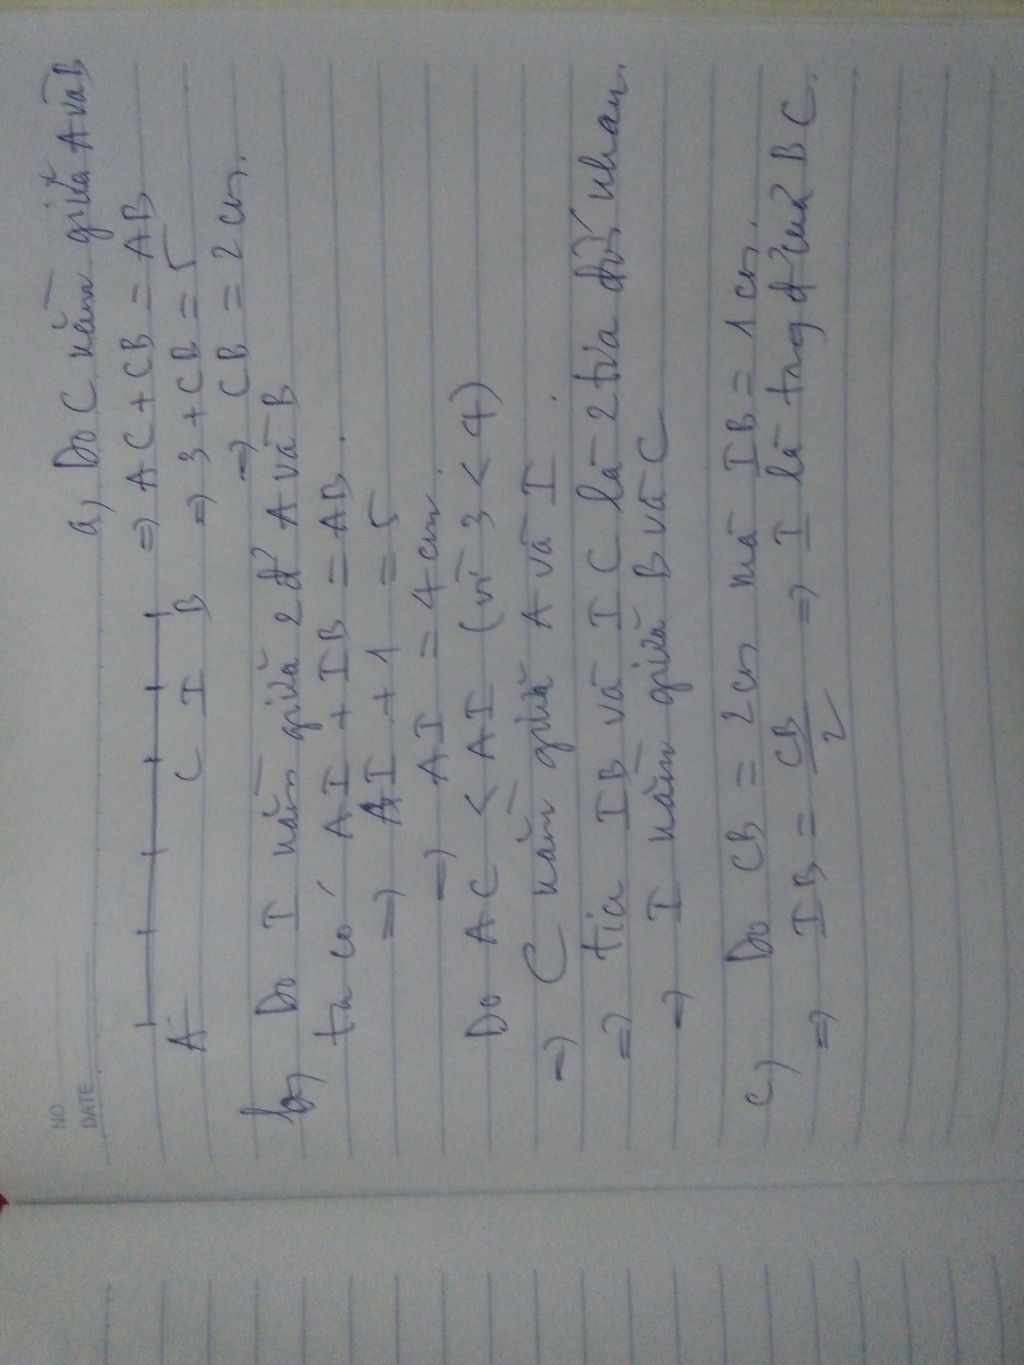 NO
DATE
a) Do C nằm giữa A và B
=> AC + CB = AB
A C I B => 3 + CB = 5
=> CB = 2cm.
b) Do I nằm giữa 2 đ² A và B
ta có AI + IB = AB.
=> AI + 1 = 5
=> AI = 4cm.
Do AC < AI (vì 3 < 4)
=> C nằm giữa A và I.
=> tia IB và IC là 2 tia đối nhau.
=> I nằm giữa B và C
c) Do CB = 2cm mà IB = 1cm.
=> IB = CB/2 => I là trng đ² của BC.